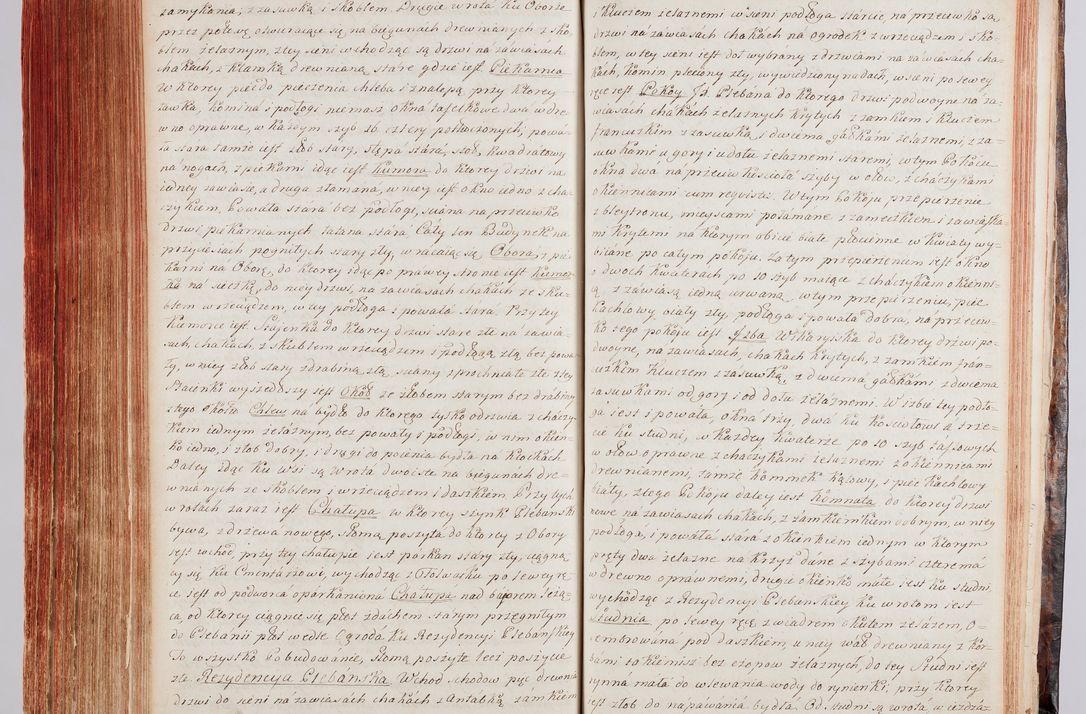 zamykania, z zasuwką i skoblem. Drugie wrota ku Oborze
przez połowę otwieraiące się na biegunach drewnianych z sko-
blem żelaznym, z tey sieni wchodząc są drzwi na zawiasach
chakach, z klamką drewnianą stare gdzie iest Piekarnia
W ktorey piec do pieczenia chleba i znalepą, przy ktorey
zawka, komina i podłogi niemasz, okna tafelkowe dwa w dre-
wno oprawne, w każdym szyb 16. cztery potłuczonych, powa-
ła stara tamże iest stoł stary, stępa stara, stoł kwadratowy
na nogach, z piekarni idąc iest Kumora do ktorey drzwi na
iedney zawiasie, a druga złamana, w niey iest okno iedno z cha-
czykiem. Powała stara bez podłogi, sciana na przeciwko
drzwi piekarnianych łatana stara Cały ten Budynek na
przyciesiach pogniłych stary zły, wracaiąc się Obora, z pie-
karni na Oborę, do ktorey idąc po prawey stronie iest Kumor-
ka na sieczkę, do niey drzwi, na zawiasach chakach ze sko-
blem wrzeciądzem, w niey podłoga i powała stara. Przy tey
Kumorce iest Staienka do ktorey drzwi stare złe na zawia-
sach, chakach, z skoblem wrzeciądzem i podłogą złą, bez powa-
ły, w niey żłob stary z drabiną złą, sciany zprochniałe złe z tey
Staienki wyszedszy iest Okoł ze żłobem starym bez drabiny
z tego okołu Chlew na bydło do ktorego tylko odrzwia z chaczy-
kiem iednym żelaznym, bez powały i podłogi, w nim okien-
ko iedno, i żłob dobry, i drągi do poienia bydła na kołkach.
Daley idąc ku wsi są wrota dwoiste na biegunach dre-
wnianych ze skoblem i wrzeciądzem i daszkiem. Przy tych
wrotach zaraz iest Chałupa w ktorey szynk Plebanski
bywa, z drzewa nowego, słomą poszyta do ktorey z Obory
iest wchod, przy tey chałupie iest parkan stary zły, ciągną-
cy się ku Cmentarzowi, wychodząc z Folwarku po lewey rę-
ce iest od podworca oparkaniona Chałupa nad bajorem leżą-
ca, od ktorey ciągnie się płot z dachem starym przegniłym
do Plebanii płot wedle Ogroda ku Rezydencyi Plebańskiey
To wszystko Pobudowanie, słomą poszyte lecz poszycie
złe. Rezydencya Plebanska Wchod schodow pięc drewnia
drzwi do sieni na zawiasach chakach z antabką zamkiem
i kluczem żelaznem w sieni podłoga stara, na przeciwko są
drzwi na zawiasach chakach na ogrodek z wrzeciądzem i sko-
blem, w tey sieni iest doł wybrany z drzwiami na zawiasach cha-
kach, Komin pleciony zły, wywiedziony nadach, w sieni po lewey
ręce iest Pokoy Jd. Plebana do ktorego drzwi podwoyne na za-
wiasach chakach żelaznych krytych z zamkiem i kluczem
francuzkim z zasuwką, i dwiema gałkami żelaznemi, z za-
suwkami u gory i u dołu żelaznemi staremi, w tym Pokoiu
okna dwa na przeciw kościoła szyby w ołow, z chaczykami
okiennicami cum requisitis. W tym Pokoiu przepierzenie
z bleytronu, mieyscami połamane z zameczkiem i zawiaska-
mi krytemi na ktorym obicie białe płocienne w kwiaty wy-
biiane po całym pokoiu. Za tym przepierzeniem iest okno
o dwoch kwaterach po 10 szyb maiące z chaczykiem okienni-
cą z zawiasą iedną urwaną, w tym przepierzeniu, piec
kachlowy biały zły, podłoga i powała dobra, na przeciw-
ko tego pokoiu iest Izba Wikaryiska do ktorey drzwi po-
dwoyne, na zawiasach, chakach krytych, z zamkiem fran-
cuzkim kluczem z zasuwką, z dwiema gałkami z dwiema
zasuwkami od gory i od dołu żelaznemi. W izbie tey podło-
ga iest i powała, okna trzy, dwa ku kosciołowi a trze-
cie ku studni, w każdey kwaterze po 10 szyb taflowych
w ołow oprawne z chaczykami żelaznemi z okiennicami
drewnianemi, tamże kominek kątowy, i piec kachlowy
biały, z tego Pokoiu daley iest Komnata do ktorey drzwi
nowe na zawiasach chakach, z zamkiem dobrym, w niey
podłoga, i powała stara z okienkiem iednym w ktorym
pręty dwa żelazne na krzyż dane z szybami czterema
w drewno oprawnemi, drugie okienko małe iest ku studni,
wychodząc z Rezydencyi Plebanskiey ku wrotom iest
Studnia, po lewey ręce z wiadrem okutem żelazem, o-
cembrowana pod daszkiem, u niey wał drewniany z kor-
bami takiemisz bez czopow żelaznych, do tey studni iest
rynna mała do wlewania wody do rymenki, przy ktorey
iest żłob do napawania bydła. Od studni są wrota w ieżdżaz